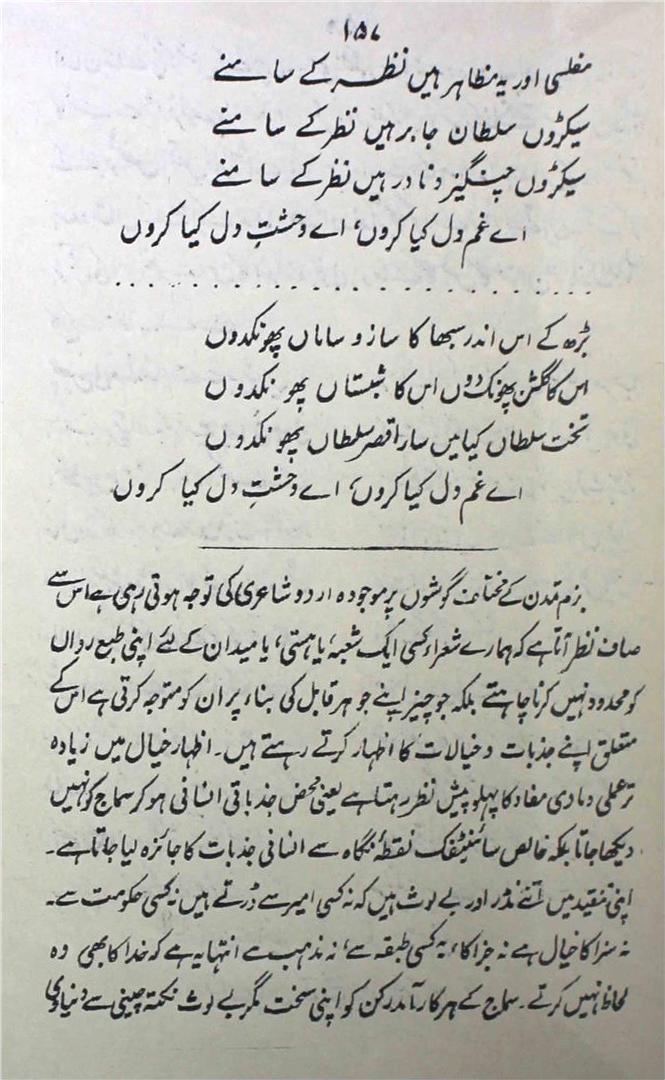 ۱۵۷
مفلسی اور یہ مظاہر ہیں نظر کے سامنے
سیکڑوں سلطان جابر ہیں نظر کے سامنے
سیکڑوں چنگیز و نادر ہیں نظر کے سامنے
اے غم دل کیا کروں، اے وحشتِ دل کیا کروں
بڑھ کے اس اندر سبھا کا ساز و ساماں پھونکدوں
اس کا گلشن پھونک دوں اس کا شبستاں پھونکدوں
تخت سلطاں کیا میں سارا قصر سلطاں پھونکدوں
اے غم دل کیا کروں، اے وحشتِ دل کیا کروں
بزم تمدن کے مختلف گوشوں پر موجودہ اردو شاعری کی توجہ ہوتی رہی ہے اس سے
صاف نظر آتا ہے کہ ہمارے شعراء کسی ایک شعبہ، یا ہستی، یا میدان کے لئے اپنی طبع رواں
کو محدود نہیں کرنا چاہتے بلکہ جو چیز اپنے جوہر قابل کی بناء پر ان کو متوجہ کرتی ہے اس کے
متعلق اپنے جذبات و خیالات کا اظہار کرتے رہتے ہیں۔ اظہار خیال میں زیادہ
تر عملی و مادی مفاد کا پہلو پیش نظر رہتا ہے یعنی محض جذباتی انسانی ہو کر سماج کو نہیں
دیکھا جاتا بلکہ خالص سائنٹفک نقطۂ نگاہ سے انسانی جذبات کا جائزہ لیا جاتا ہے۔
اپنی تنقید میں اتنے نڈر اور بے لوث ہیں کہ نہ کسی امیر سے ڈرتے ہیں نہ کسی حکومت سے۔
نہ سزا کا خیال ہے نہ جزا کا، نہ کسی طبقہ سے، نہ مذہب سے انتہا یہ ہے کہ خدا کا بھی وہ
لحاظ نہیں کرتے۔ سماج کے ہر کار آمد رکن کو اپنی سخت مگر بے لوث نکتہ چینی سے دنیاوی